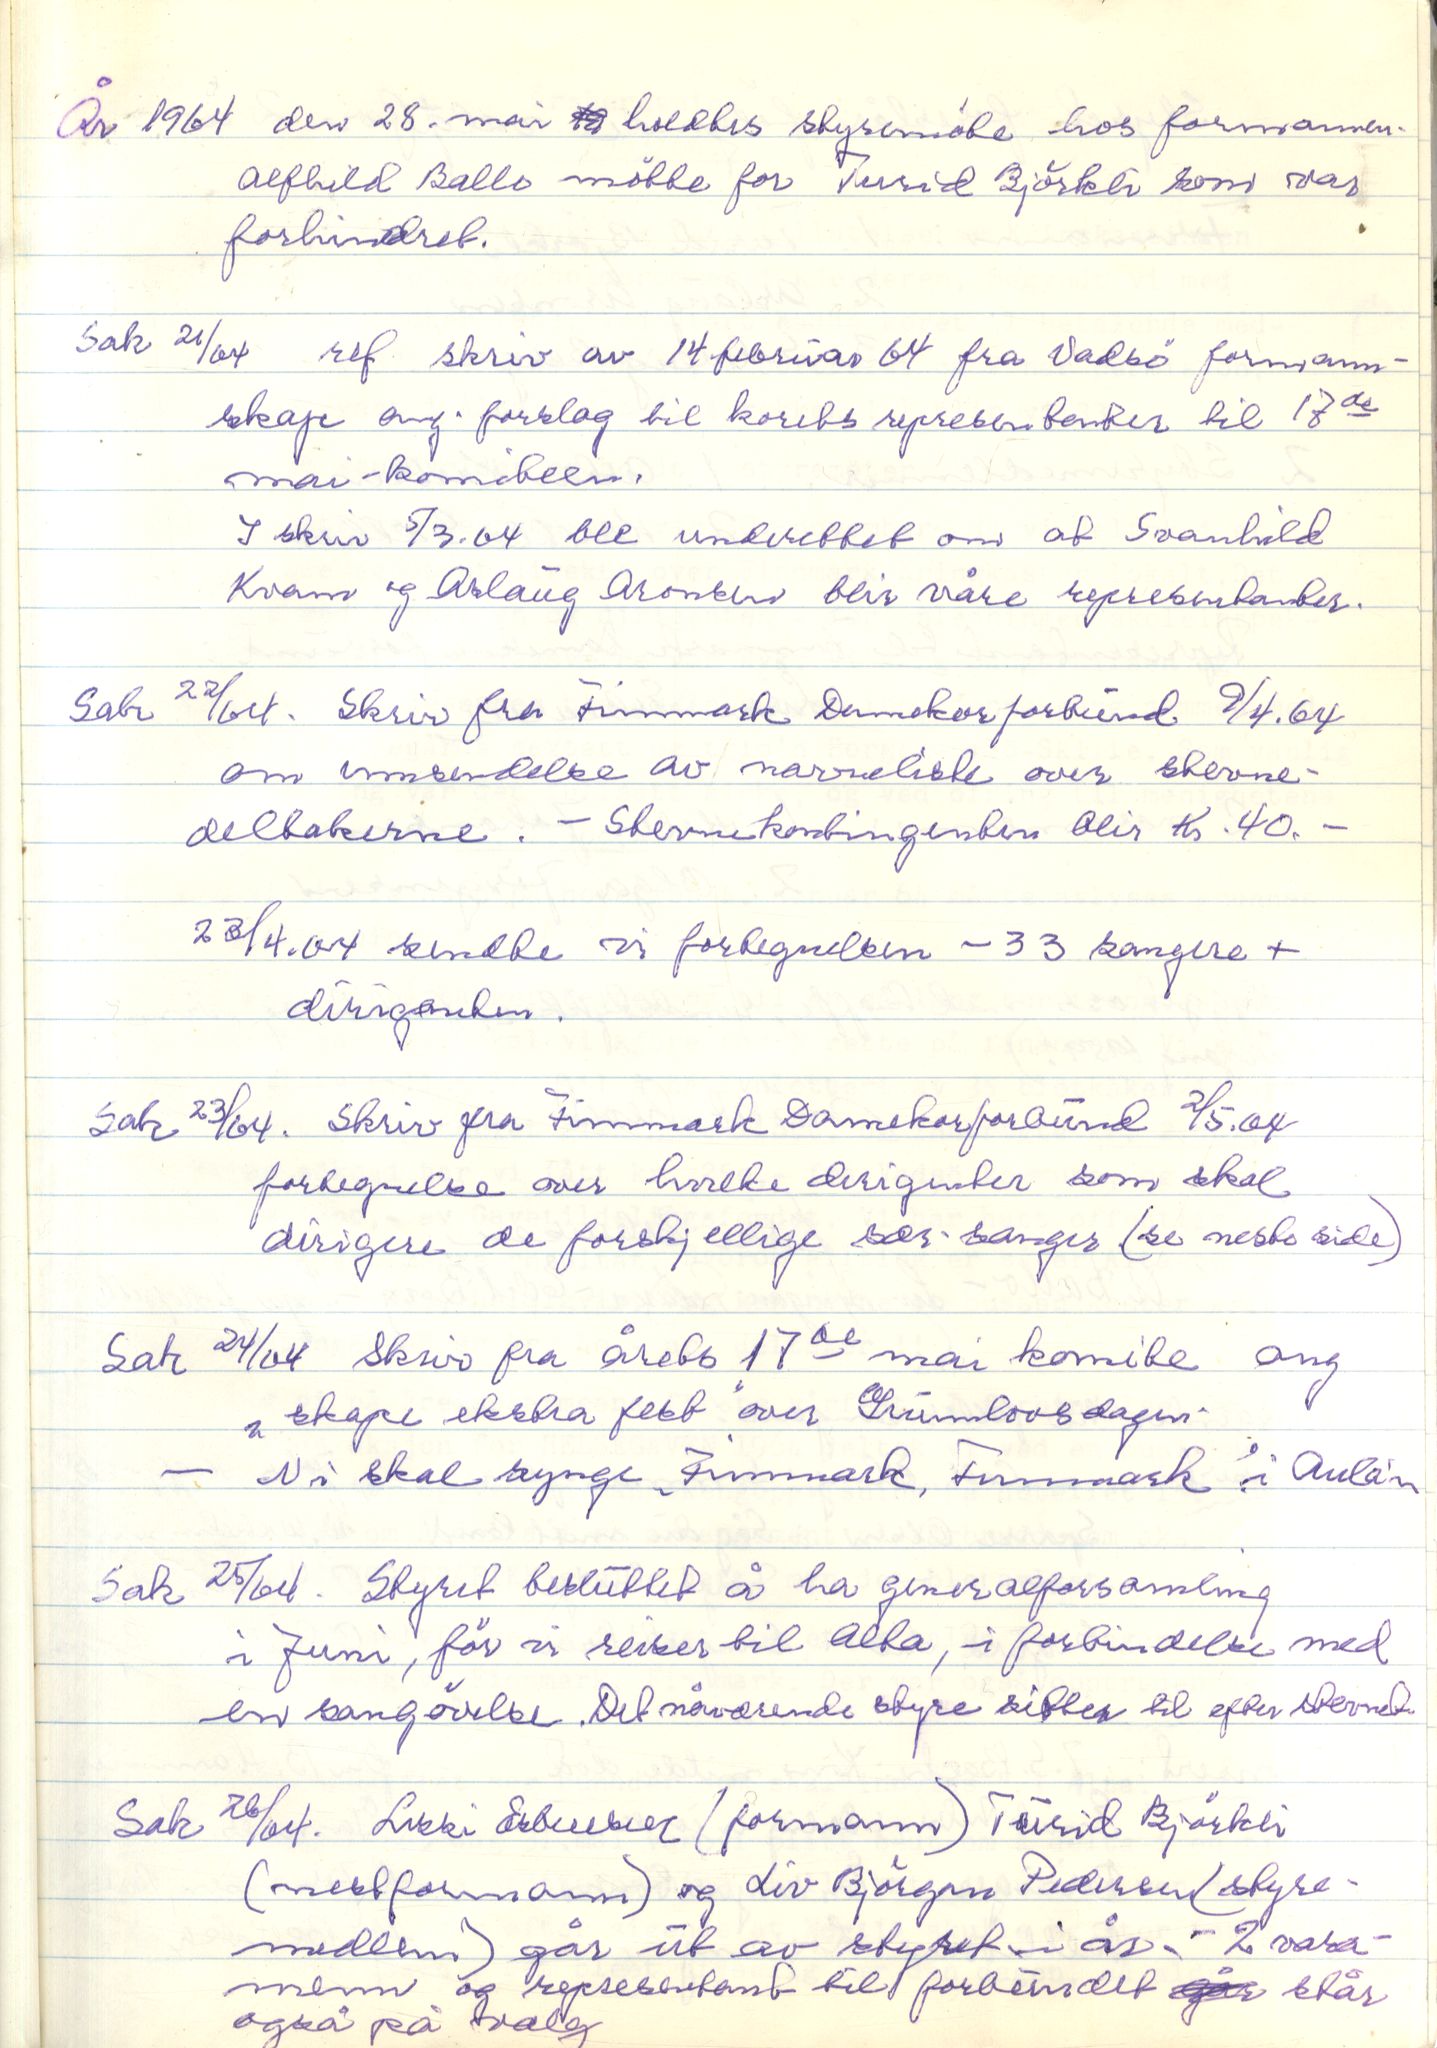 År 1964 den 28. mai holdtes styremöte hos formannen.
Alfhild Ballo mötte for Turid Björkli som var
forhindret.
Sak 21/64 ref skriv av 14 februar 64 fra Vadsö formann-
skap ang. forslag til korets representanter til 17de
mai-komiteen.
I skriv 5/3.64 ble underettet om at Svanhild
Kvam og Aslaug Aronsen blir våre representanter.
Sak 22/64. Skriv fra Finnmark Damekorforbund 9/4.64
om innsendelse av navneliste over stevne-
deltakerne. - Stevnekontingenten blir kr. 40.-
23/4.64 sendte vi fortegnelsen - 33 sangere +
dirigenten.
Sak 23/64. Skriv fra Finnmark Damekorforbund 2/5.64
fortegnelse over hvilke dirigenter som skal
dirigere de forskjellige sær-sanger (se neste side)
Sak 24/64 Skriv fra årets 17de mai komite ang
„skape ekstra fest" over Grunnlovsdagen.
- Vi skal synge „Finnmark, Finnmark" i Aula'n
Sak 25/64. Styret besluttet å ha generalforsamling
i Juni, för vi reiser til Alta, i forbindelse med
en sangövelse. Det nåværende styre sitter til efter stevnet.
Sak 26/64. (formann) Turid Björkli
(nestformann) og Liv Björgen Pedersen (styre-
medlem) går ut av styret i år. - 2 vara-
menn og representant til forbundet står
også på valg